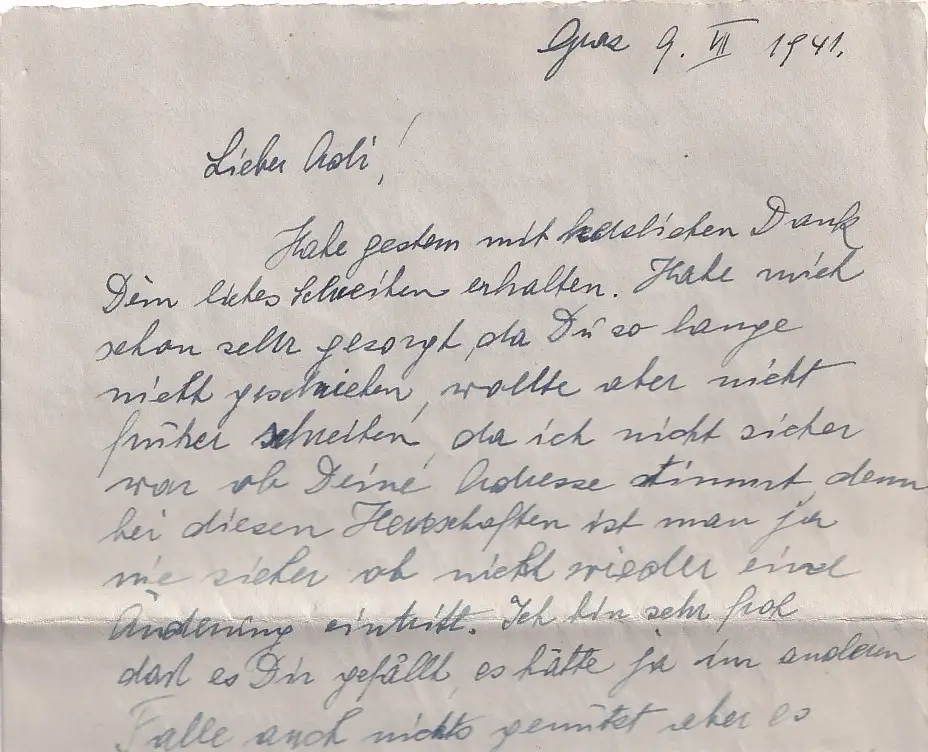 Graz 9. VII 1941.
Lieber Adi!
Habe gestern mit herzlichen Dank
Dein liebes Schreiben erhalten. Habe mich
schon sehr gesorgt, da Du so lange
nicht geschrieben, wollte aber nicht
früher schreiben, da ich nicht sicher
war ob Deine Adresse stimmt, denn
bei diesen Herrschaften ist man ja
nie sicher ob nicht wieder eine
Änderung eintritt. Ich bin sehr froh
daß es Dir gefällt, es hätte ja im anderen
Falle auch nichts genützt aber es